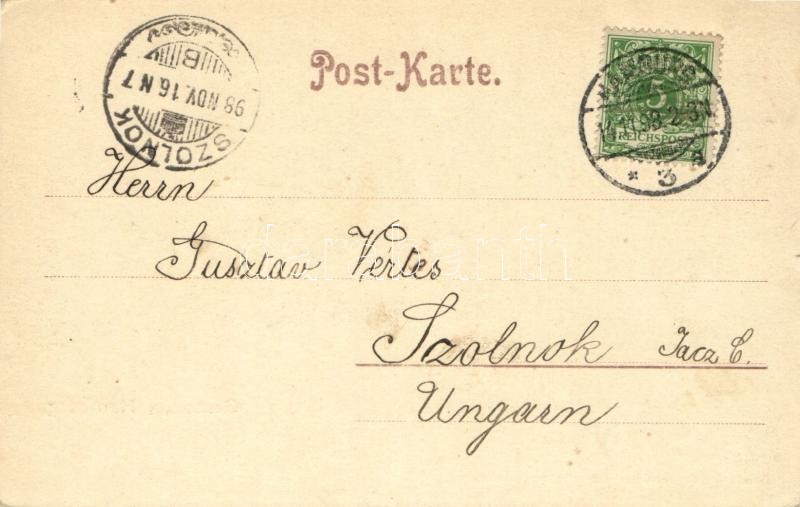 Post-Karte.
SZOLNOK
98 NOV. 16. N 7
B
HAMBURG
11.98. 2-3
* 3 a
5
REICHSPOST
Herrn
Gusztav Vértes
Szolnok
Ungarn
darabanth